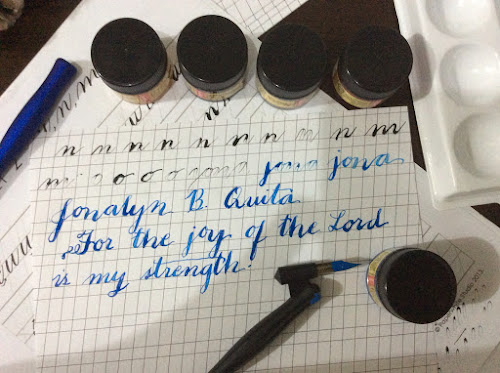 n n n n n n n n n m
jona jona
Jonalyn B. Quita
For the joy of the Lord
is my strength!